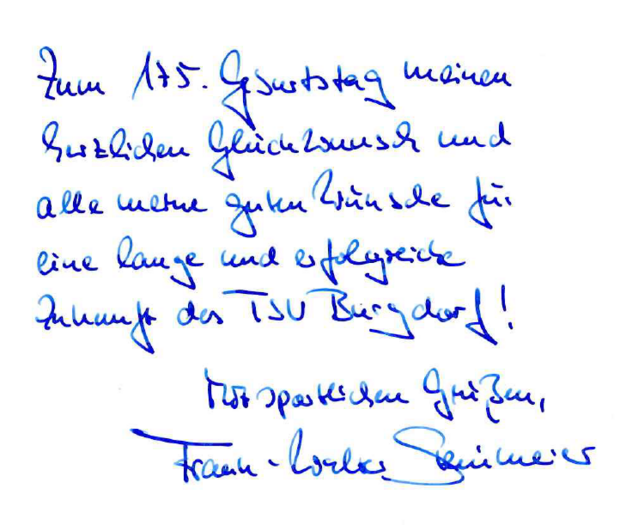 Zum 175. Geburtstag meinen
herzlichen Glückwunsch und
alle meine guten Wünsche für
eine lange und erfolgreiche
Zukunft des TSV Burgdorf!
Mit sportlichen Grüßen,
Frank-Walter Steinmeier